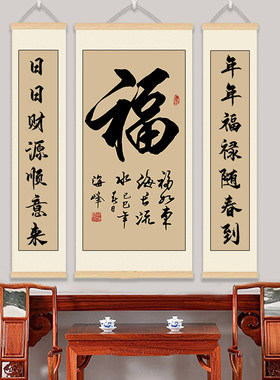 年年福禄随春到
福
福如東
海長流
水
海峰
日日财源顺意来